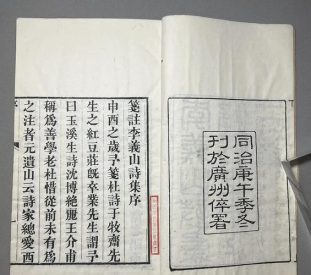 同治庚午季冬
刊於廣州倅署
箋註李義山詩集序
申酉之歲予箋杜詩于牧齋先
生之紅豆莊既卒業先生謂予
曰玉溪生詩沈博絶麗王介甫
稱爲善學老杜惜從前未有爲
之注者元遺山云詩家總愛西